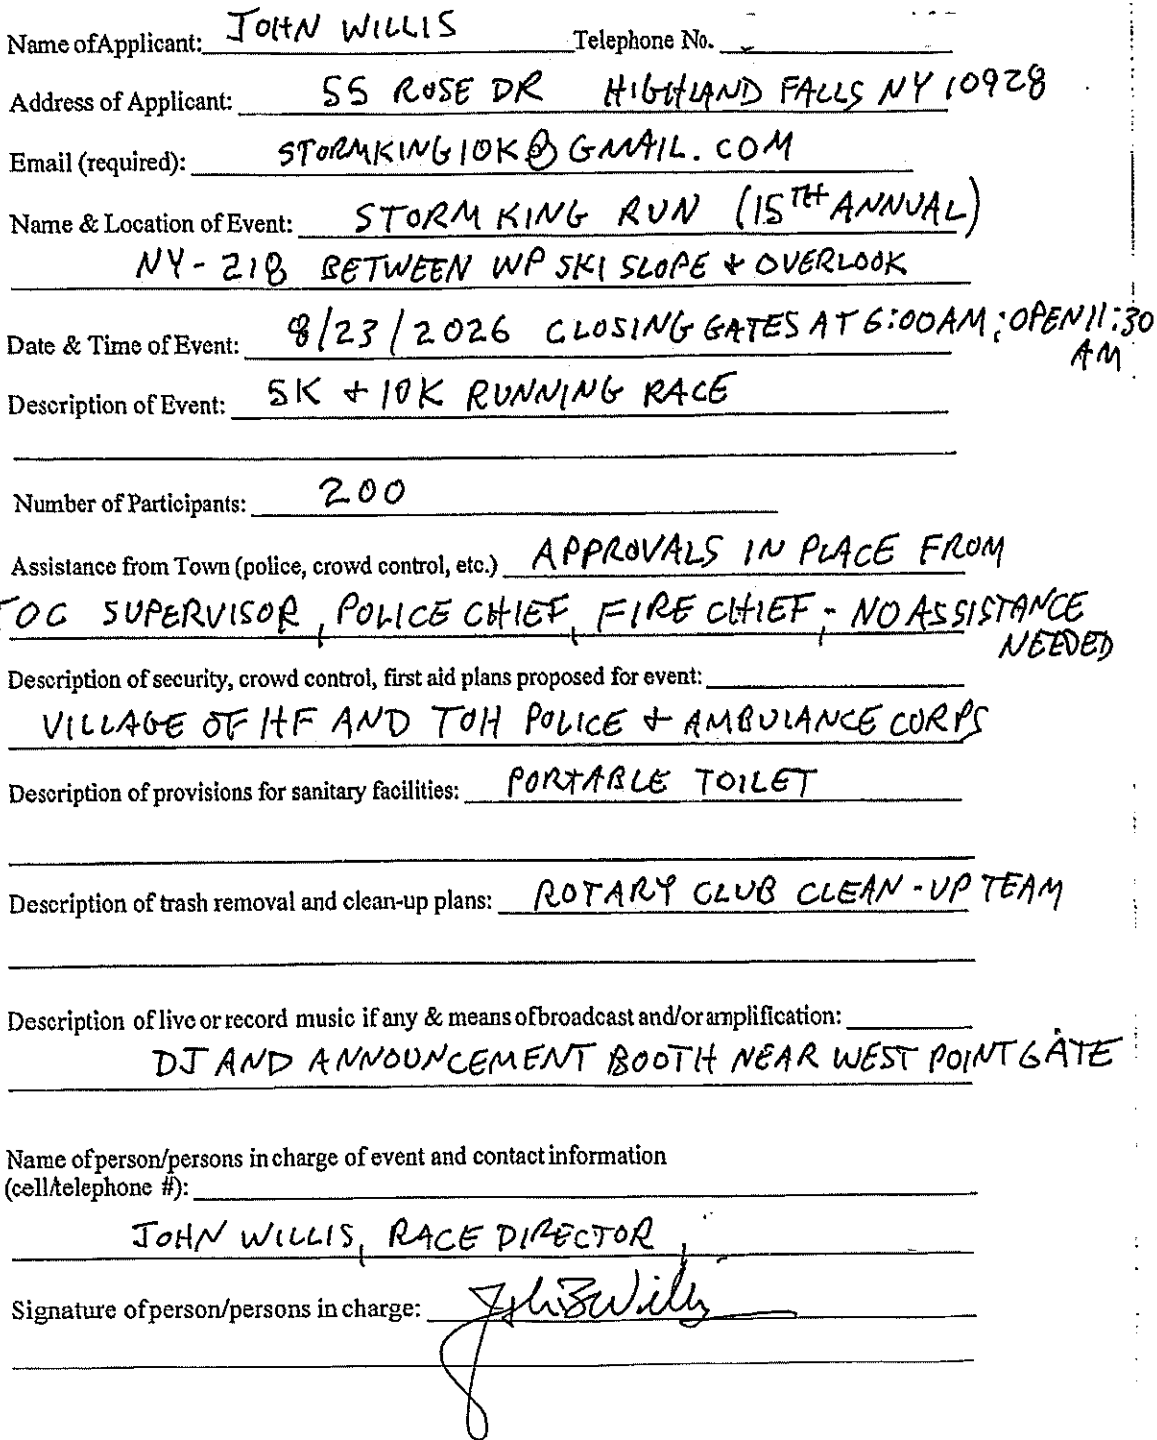 Name of Applicant: JOHN WILLIS Telephone No.
Address of Applicant: 55 ROSE DR HIGHLAND FALLS NY 10928
Email (required): STORMKING10K@GMAIL.COM
Name & Location of Event: STORM KING RUN (15TH ANNUAL)
NY-218 BETWEEN WP SKI SLOPE + OVERLOOK
Date & Time of Event: 8/23/2026 CLOSING GATES AT 6:00AM; OPEN 11:30
AM
Description of Event: 5K + 10K RUNNING RACE
Number of Participants: 200
Assistance from Town (police, crowd control, etc.) APPROVALS IN PLACE FROM
TOC SUPERVISOR, POLICE CHIEF, FIRE CHIEF; NO ASSISTANCE
NEEDED
Description of security, crowd control, first aid plans proposed for event:
VILLAGE OF HF AND TOH POLICE + AMBULANCE CORPS
Description of provisions for sanitary facilities: PORTABLE TOILET
Description of trash removal and clean-up plans: ROTARY CLUB CLEAN-UP TEAM
Description of live or record music if any & means of broadcast and/or amplification:
DJ AND ANNOUNCEMENT BOOTH NEAR WEST POINT GATE
Name of person/persons in charge of event and contact information
(cell/telephone #):
JOHN WILLIS, RACE DIRECTOR,
Signature of person/persons in charge: John B Willis